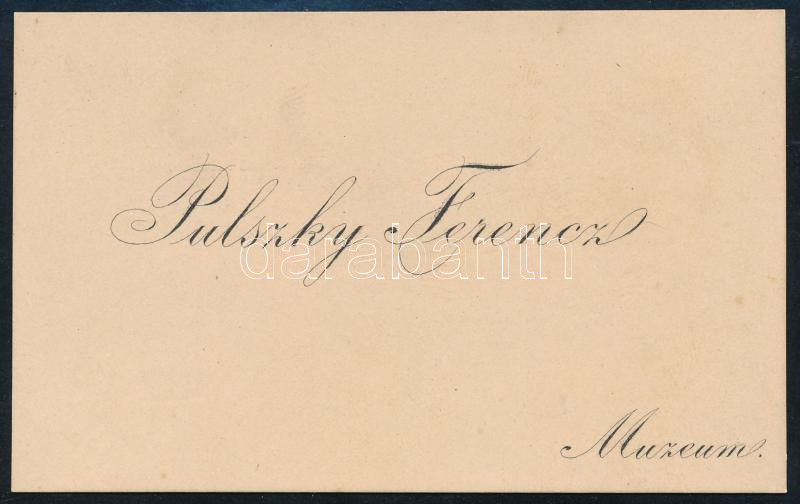 Pulszky Ferencz
darabanth
Muzeum.